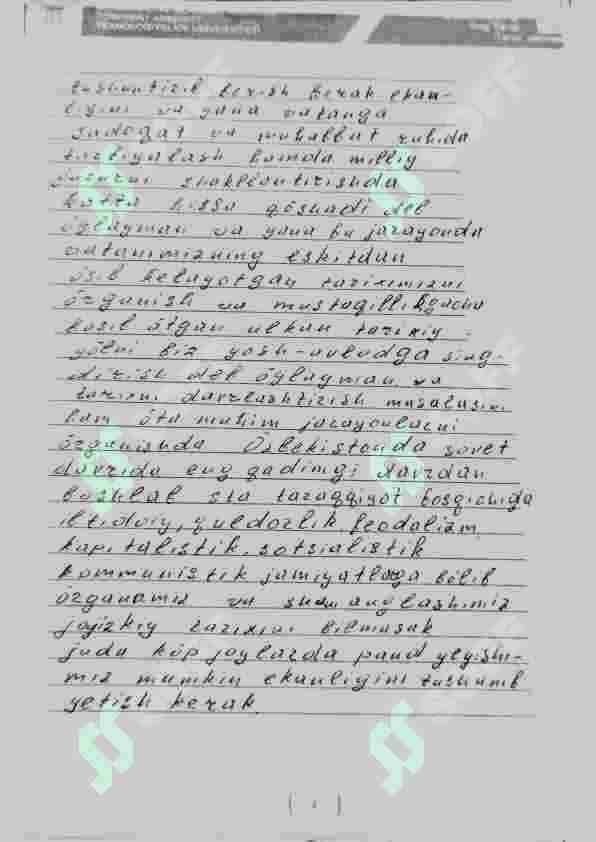 TOSHKENT KIMYO-
TEXNOLOGIYALAR UNIVERSITETI
tushuntirib berish kerak ekan-
ligini va yana vatanga
sadoqat va muhabbat ruhida
tarbiyalash hamda milliy
shakllantirishda
katta hissa qöshadi deb
öylayman va yana bu jarayonda
vatanimizning eskitdan
ösib kelayotgan tariximizni
örganish va mustaqillikgacha
bosib ötgan ulkan tarixiy
yölni biz yosh-avlodga sing-
dirish deb öylayman va
tarixni davrlashtirish masalasini
ham öta muhim jarayonlarni
örganishda Özbekistonda sovet
davrida eng qadimgi davrdan
boshlab sta taraqqiyot bosqichiga
ibtidoiy, quldorlik, feodalizm,
kapitalistik, sotsialistik
kommunistik jamiyatlarga bölib
örganamiz va shuni anglashimiz
joyizkiy tarixini bilmasak
juda köp joylarda pand yeyishi-
miz mumkin ekanligini tushunib
yetish kerak.